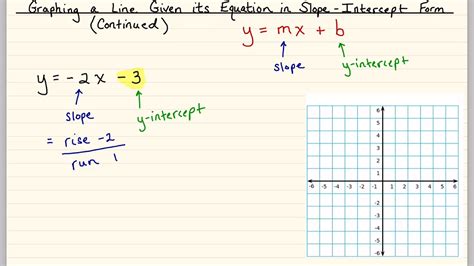 Graphing a Line Given its Equation in Slope-Intercept Form
(Continued)
y = mx + b
slope
y-intercept
y = -2x -3
slope
y-intercept
= rise -2
run 1
6
5
4
3
2
1
-6 -5 -4 -3 -2 -1 0 1 2 3 4 5 6
-1
-2
-3
-4
-5
-6